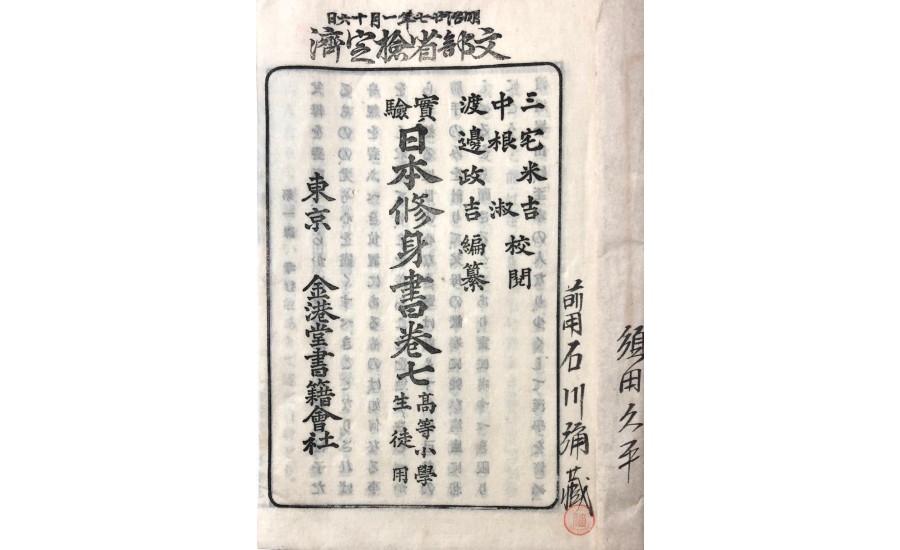 明治廿七年一月十六日
文部省檢定濟
三宅米吉
中根淑
校閲
渡邊政吉編纂
實驗
日本修身書卷七
高等小學
生徒用
東京 金港堂書籍會社
前用石川彌藏
須田久平